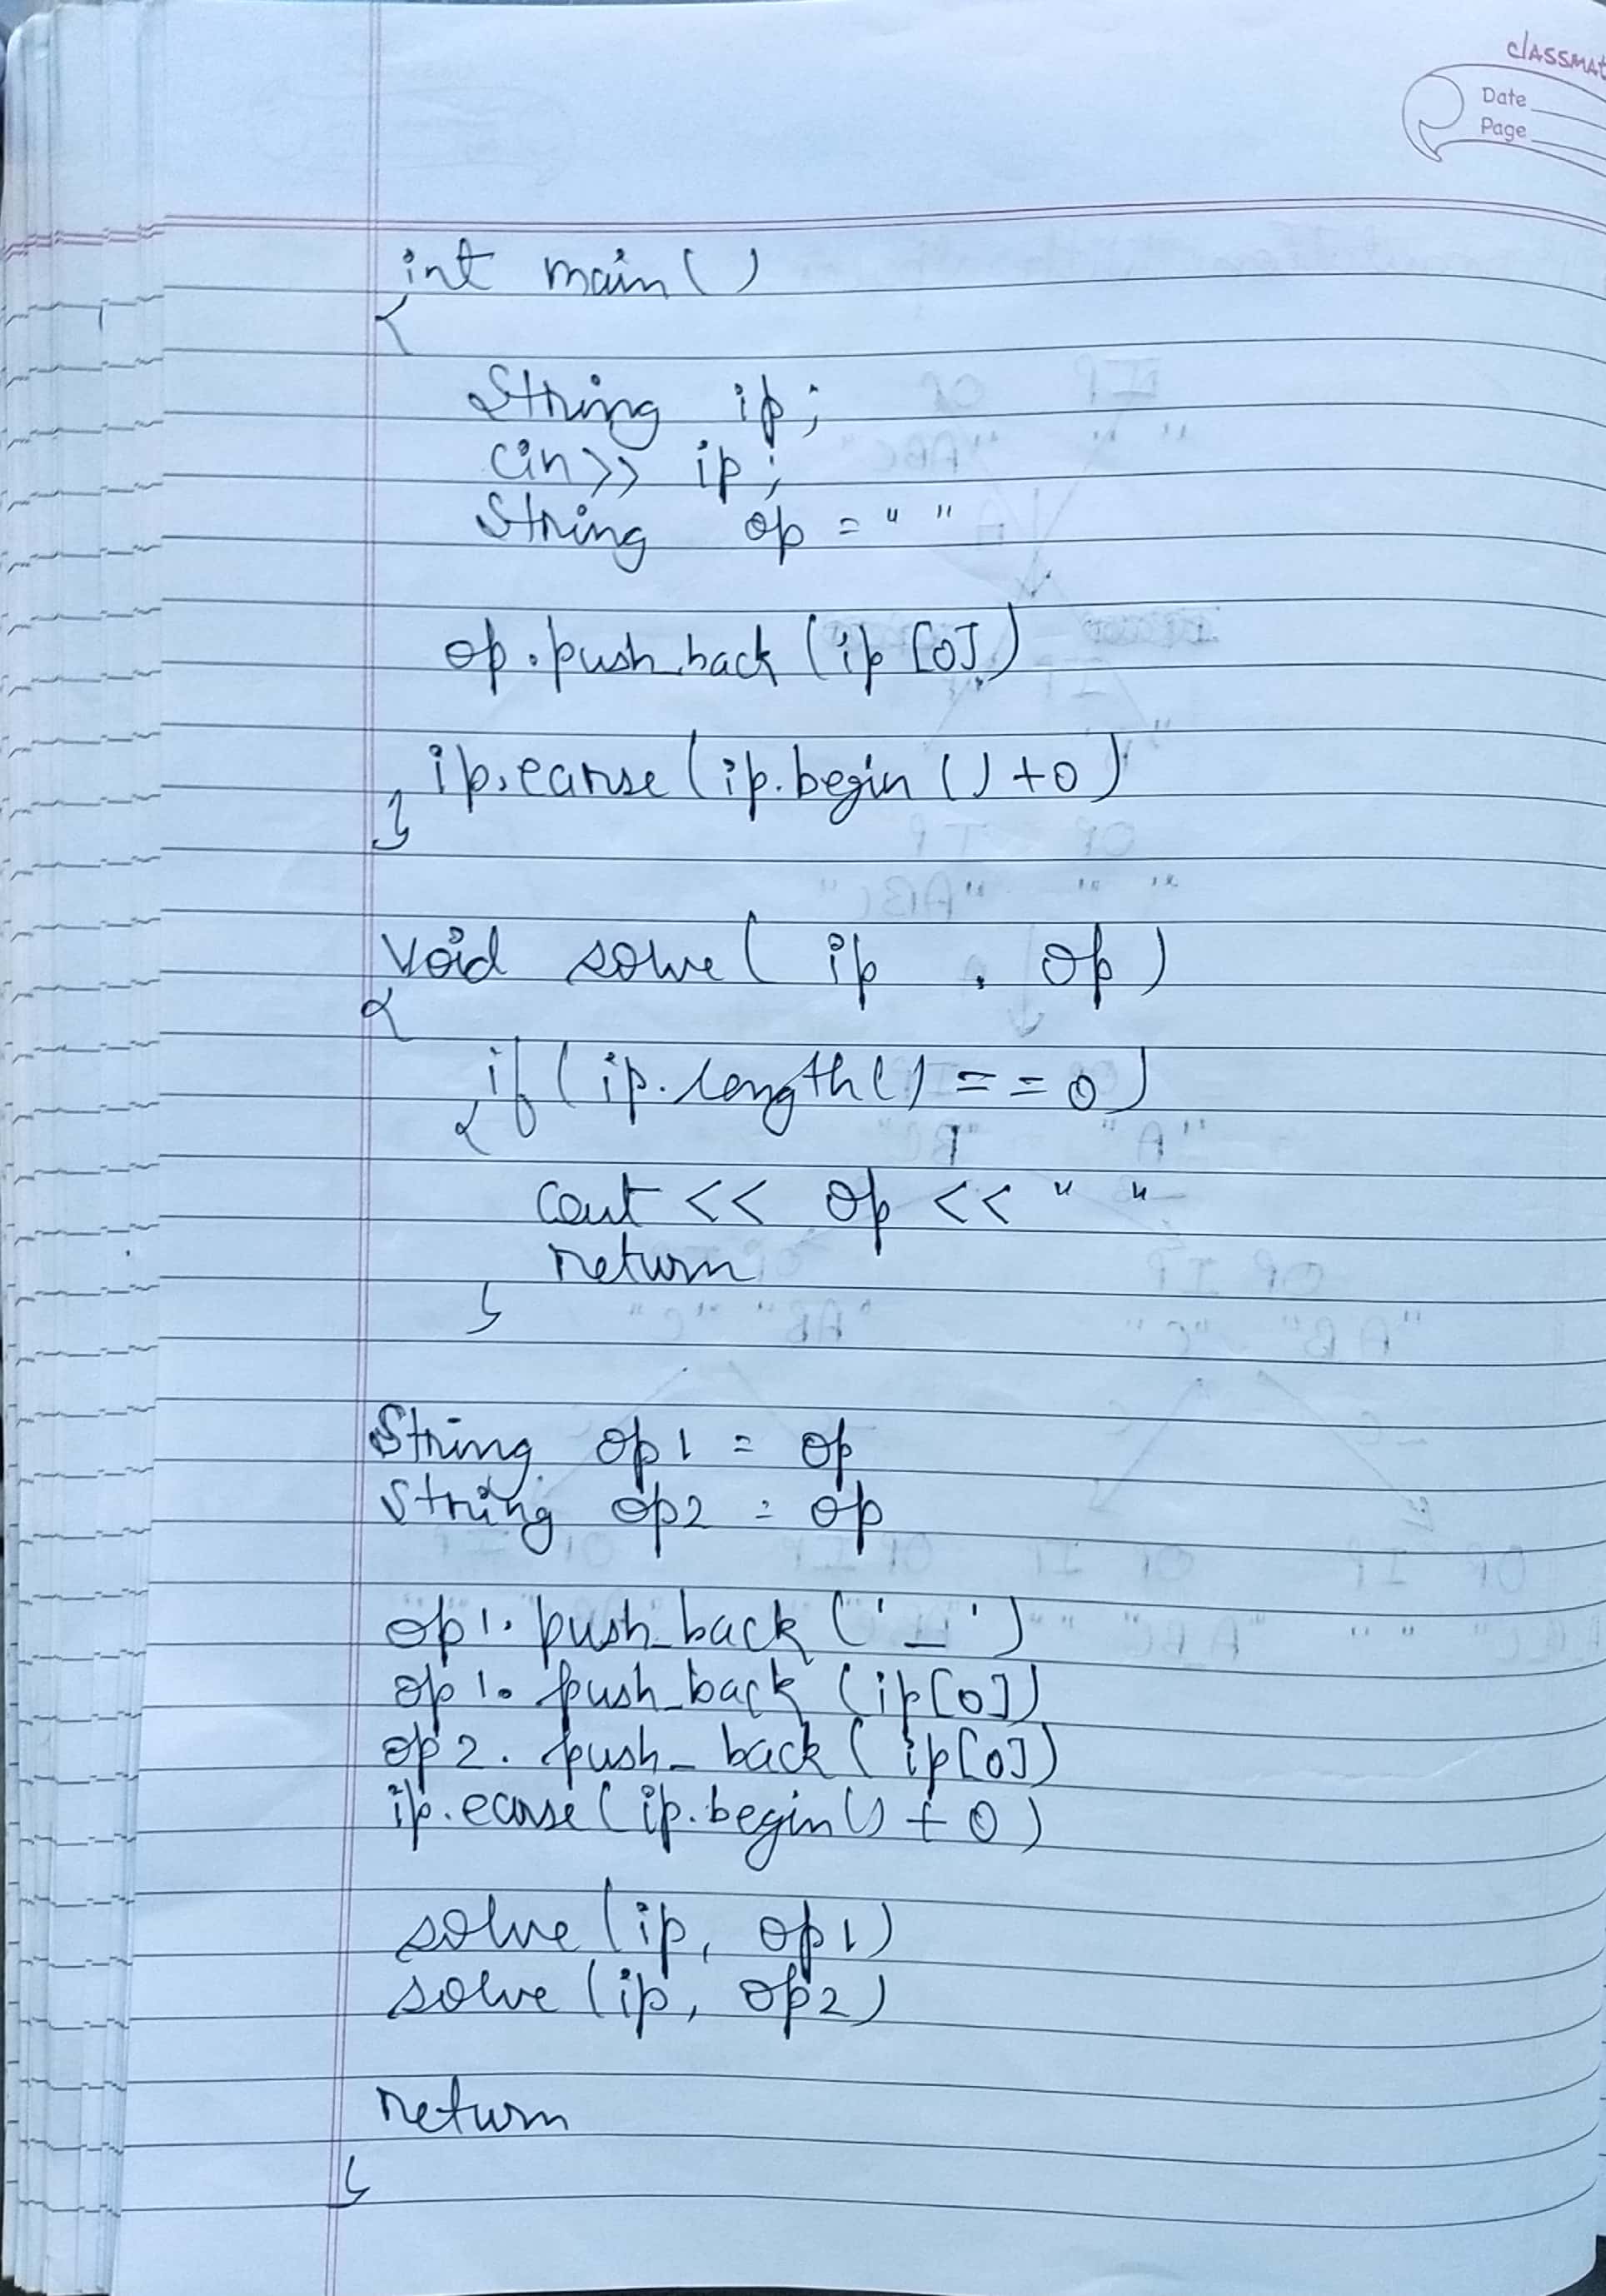 classmat
Date
Page
int main()
{
String ip;
cin>> ip;
String op = " "
op.push_back (ip[0])
ip.earse (ip.begin () +0)
}
Void solve( ip , op)
{
if (ip.length() == 0)
{
Cout << op << " "
return
}
String op1 = op
String op2 = op
op1.push_back ('_')
op1.push_back (ip[0])
op2.push_back (ip[0])
ip.earse (ip.begin() + 0)
solve (ip, op1)
solve (ip, op2)
return
}